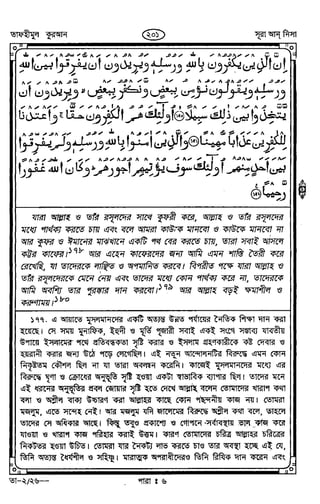 তাফহীমুল কুরআন
২০১
সূরা আন্ নিসা
إِنَّ الَّذِينَ يَكْفُرُونَ بِاللهِ وَرُسُلِهِ وَيُرِيدُونَ أَنْ يُفَرِّقُوا بَيْنَ اللهِ
وَرُسُلِهِ وَيَقُولُونَ نُؤْمِنُ بِبَعْضٍ وَنَكْفُرُ بِبَعْضٍ وَيُرِيدُونَ أَنْ
يَتَّخِذُوا بَيْنَ ذٰلِكَ سَبِيلًا أُولٰئِكَ هُمُ الْكٰفِرُونَ حَقًّا وَأَعْتَدْنَا
لِلْكٰفِرِينَ عَذَابًا مُهِينًا وَالَّذِينَ آمَنُوا بِاللهِ وَرُسُلِهِ وَلَمْ يُفَرِّقُوا
بَيْنَ أَحَدٍ مِنْهُمْ أُولٰئِكَ سَوْفَ يُؤْتِيهِمْ أُجُورَهُمْ وَكَانَ اللهُ غَفُورًا
رَحِيمًا
যারা আল্লাহ ও তাঁর রসূলদের সাথে কুফরী করে, আল্লাহ ও তাঁর রসূলদের
মধ্যে পার্থক্য করতে চায় এবং বলে আমরা কাউকে মানবো ও কাউকে মানবো না
আর কুফর ও ঈমানের মাঝখানে একটি পথ বের করতে চায়, তারা সবাই আসলে
কট্টর কাফের।১৭৮ আর এহেন কাফেরদের জন্য আমি এমন শাস্তি তৈরী করে
রেখেছি, যা তাদেরকে লাঞ্ছিত ও অপমানিত করবে। বিপরীত পক্ষে যারা আল্লাহ ও
তাঁর রসূলদেরকে মেনে নেয় এবং তাদের মধ্যে কোন পার্থক্য করে না, তাদেরকে
আমি অবশ্যি তার পুরস্কার দান করবো।১৭৯ আর আল্লাহ বড়ই ক্ষমাশীল ও
করুণাময়।১৮০
১৭৭. এ আয়াতে মুসলমানদের একটি অত্যন্ত উন্নত পর্যায়ের নৈতিক শিক্ষা দান করা
হয়েছে। সে সময় মুনাফিক, ইহুদী ও মূর্তি পূজারী সবাই একই সংগে সম্ভাব্য যাবতীয়
উপায়ে ইসলামের পথে প্রতিবন্ধকতা সৃষ্টি করার ও ইসলাম গ্রহণকারীকে কষ্ট দেবার ও
হয়রানী করার জন্য উঠে পড়ে লেগেছিল। এই নতুন আন্দোলনটির বিরুদ্ধে এমন কোন
নিকৃষ্টতম কৌশল ছিল না যা তারা অবলম্বন করেনি। কাজেই মুসলমানদের মধ্যে এর
বিরুদ্ধে ঘৃণা ও ক্রোধের অনুভূতি সৃষ্টি হওয়া একটা স্বাভাবিক ব্যাপার ছিল। তাদের মনে
এই ধরনের অনুভূতির প্রবল জোয়ার সৃষ্টি হতে দেখে আল্লাহ বলেন তোমাদের খারাপ কথা
বলা ও অশ্লীল বাক্য উচ্চারণ করা আল্লাহর কাছে কোন পছন্দনীয় কাজ নয়। তোমরা
মজলুম, এতে সন্দেহ নেই। আর মজলুম যদি জালেমের বিরুদ্ধে অশ্লীল কথা বলে, তাহলে
তাদের সে অধিকার আছে। কিন্তু তবুও প্রকাশ্যে ও গোপনে সর্বাবস্থায় ভাল কাজ করে
যাওয়া ও খারাপ কাজ পরিহার করাই উত্তম। কারণ তোমাদের চরিত্র আল্লাহর চরিত্রের
নিকটতর হওয়া উচিত। তোমরা যার নৈকট্য লাভ করতে চাও তার অবস্থা হচ্ছে এই যে,
তিনি অত্যন্ত ধৈর্যশীল ও সহিষ্ণু। মারাত্মক অপরাধীদেরও তিনি রিযিক দান করেন এবং
তা-২/২৬—
পারা : ৬